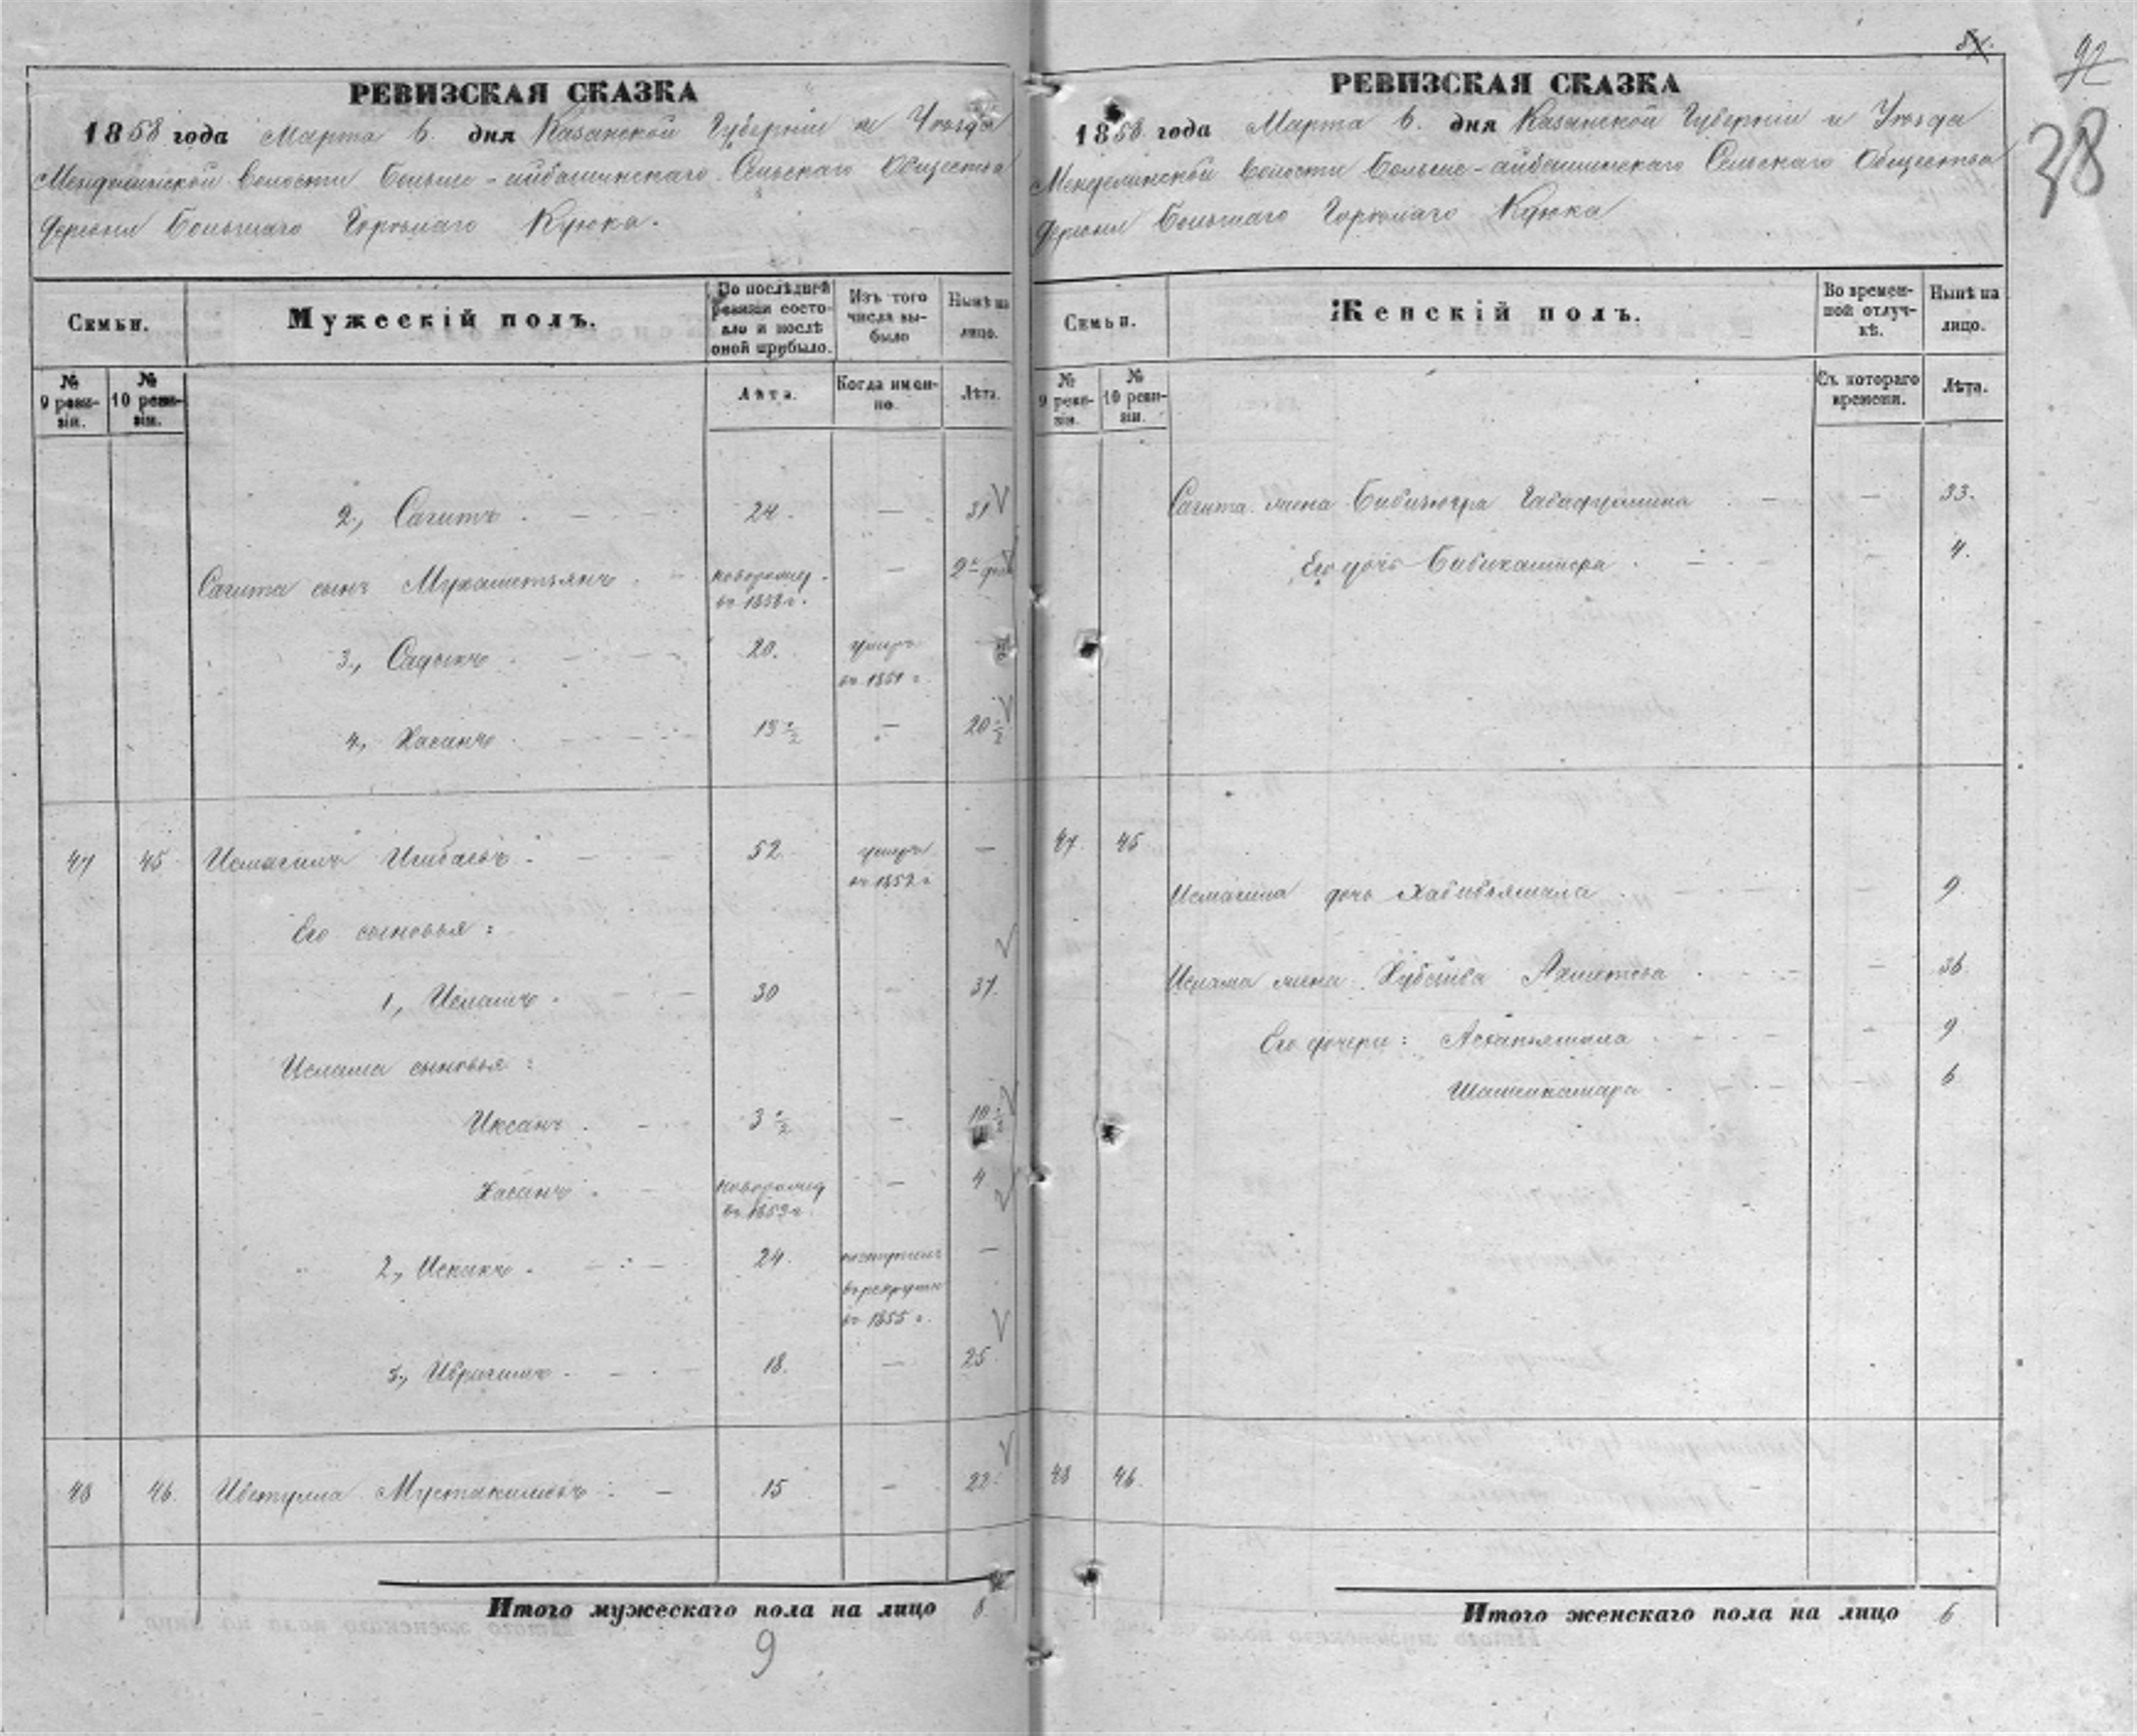 84.
92
38
РЕВИЗСКАЯ СКАЗКА
1858 года Марта 6. дня Казанской Губерніи и Уѣзда
Менделинской волости Больше-айбашинскаго Сельскаго Общества
деревни Большаго Горѣлаго Куюка.
Семьи.
Мужескій полъ.
По послѣдней ревизіи состояло и послѣ оной прибыло.
Изъ того числа выбыло
Нынѣ на лицо.
№ 9 ревизіи.
№ 10 ревизіи.
Лѣта.
Когда именно.
Лѣта.
2., Сагитъ 24. — 31
Сагита сынъ Мухаметзянъ новорожд. — 2 
въ 1858 г.
3., Садыкъ 20. умеръ —
въ 1851 г.
4., Хасанъ 13 ½ — 20 ½
47 45 Исмагилъ Ишбаевъ 52 умеръ —
въ 1852 г.
Его сыновья:
1, Исламъ 30 — 37.
Ислама сыновья:
Иксанъ 3 ½ — 10 ½
Хасанъ новорожд — 4
въ 1853 г.
2, Исхакъ 24. поступилъ —
въ рекруты
въ 1855 г.
3, Ибрагимъ 18. — 25
48 46. Ибетулла Мустакимовъ — 15 — 22.
Итого мужескаго пола на лицо 8
9
РЕВИЗСКАЯ СКАЗКА
1858 года Марта 6. дня Казанской Губерніи и Уѣзда
Менделинской волости Больше-айбашинскаго Сельскаго Общества
деревни Большаго Горѣлаго Куюка
Семьи.
Женскій полъ.
Во временной отлучкѣ.
Нынѣ на лицо.
№ 9 ревизіи.
№ 10 ревизіи.
Съ котораго времени.
Лѣта.
Сагита жена Бибизюгра Габайдуллина — — 33.
Его дочь Бибикамера — 4.
47. 45
Исмагила дочь Хабибзямала — 9.
Ислама жена Хубейба Ахметова — 36
Его дочери: Асхапзямала — 9
Шамсикамара — 6
48 46.
Итого женскаго пола на лицо 6